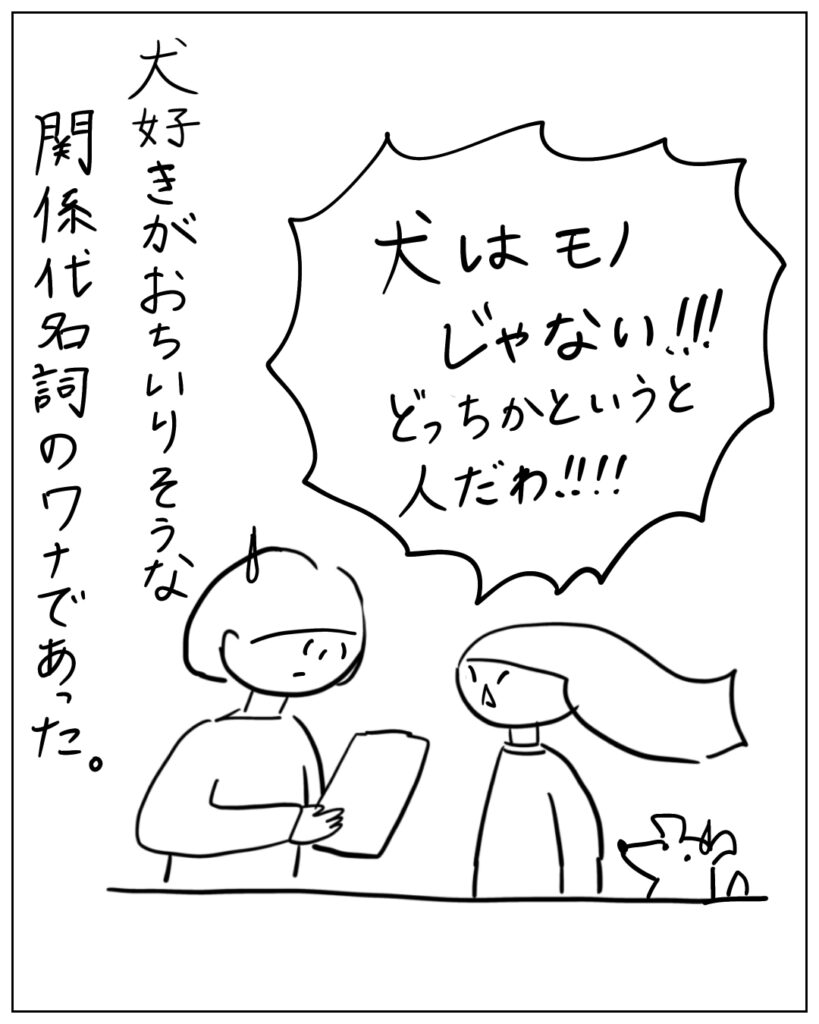 犬はモノ
じゃない!!!
どっちかというと
人だわ!!!!
犬好きがおちいりそうな
関係代名詞のワナであった。